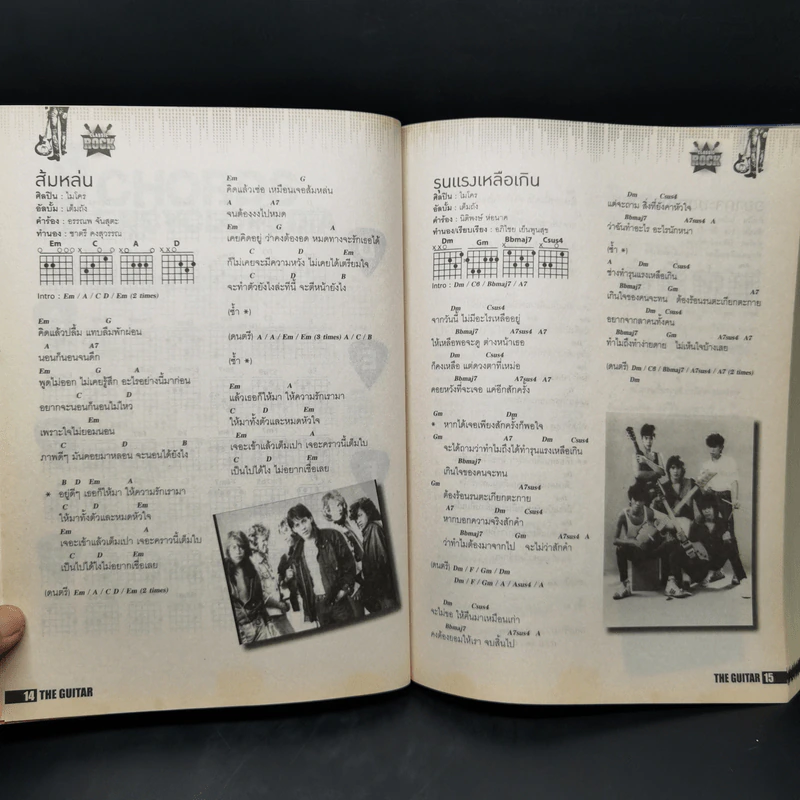 CLASSIC ROCK
ส้มหล่น
ศิลปิน : ไมโคร
อัลบั้ม : เต็มถัง
คำร้อง : อรรณพ จันสุตะ
ทำนอง : ชาตรี คงสุวรรณ
Em C A D
Intro : Em / A / C D / Em (2 times)
Em G
คิดแล้วปลื้ม แทบลืมพักผ่อน
A A7
นอนก็นอนจนดึก
Em G A
พูดไม่ออก ไม่เคยรู้สึก อะไรอย่างนี้มาก่อน
C D
อยากจะนอนก็นอนไม่ไหว
Em
เพราะใจไม่ยอมนอน
C D B
ภาพดีๆ มันคอยมาหลอน จะนอนได้ยังไง
B D Em A
* อยู่ดีๆ เธอก็ให้มา ให้ความรักเรามา
C D Em
ให้มาทั้งตัวและหมดหัวใจ
Em A
เจอะเข้าแล้วเต็มเปา เจอะคราวนี้เต็มใบ
C D Em
เป็นไปได้ไงไม่อยากเชื่อเลย
(ดนตรี) Em / A / C D / Em (2 times)
Em G
คิดแล้วเซ่อ เหมือนเจอส้มหล่น
A A7
จนต้องงงไปหมด
Em G A
เคยคิดอยู่ ว่าคงต้องอด หมดทางจะรักเธอได้
C D Em
ก็ไม่เคยจะมีความหวัง ไม่เคยได้เตรียมใจ
C D B
จะทำตัวยังไงล่ะทีนี้ จะตีหน้ายังไง
(ซ้ำ *)
(ดนตรี) A / A / Em / Em (3 times) A / C / B
(ซ้ำ *)
Em A
แล้วเธอก็ให้มา ให้ความรักเรามา
C D Em
ให้มาทั้งตัวและหมดหัวใจ
Em A
เจอะเข้าแล้วเต็มเปา เจอะคราวนี้เต็มใบ
C D Em
เป็นไปได้ไง ไม่อยากเชื่อเลย
14 THE GUITAR
CLASSIC ROCK
รุนแรงเหลือเกิน
ศิลปิน : ไมโคร
อัลบั้ม : เต็มถัง
คำร้อง : นิติพงษ์ ห่อนาค
ทำนอง/เรียบเรียง : อภิไชย เย็นพูนสุข
Dm Gm Bbmaj7 Csus4
Intro : Dm / C6 / Bbmaj7 / A7
Dm Csus4
จากวันนี้ ไม่มีอะไรเหลืออยู่
Bbmaj7 A7sus4 A7
ให้เหลือพอจะดู ต่างหน้าเธอ
Dm Csus4
ก็คงเหลือ แต่ดวงตาที่เหม่อ
Bbmaj7 A7sus4 A7
คอยหวังที่จะเจอ แค่อีกสักครั้ง
Gm Dm
* หากได้เจอเพียงสักครั้งก็พอใจ
Gm A7 Dm Csus4
จะได้ถามว่าทำไมถึงได้ทำรุนแรงเหลือเกิน
Bbmaj7
เกินใจของคนจะทน
Gm A7sus4
ต้องร้อนรนตะเกียกตะกาย
A7 Dm Csus4
หากบอกความจริงสักคำ
Bbmaj7 Gm A7sus4 A
ว่าทำไมต้องมาจากไป จะไม่ว่าสักคำ
(ดนตรี) Dm / F / Gm / Dm
Dm / F / Gm / A / Asus4 / A
Dm Csus4
จะไม่ขอ ให้คืนมาเหมือนเก่า
Bbmaj7 A7sus4 A
คงต้องยอมให้เรา จบสิ้นไป
Dm Csus4
แต่จะถาม สิ่งที่ยังคาหัวใจ
Bbmaj7 A7sus4 A
ว่าฉันทำอะไร อะไรนักหนา
(ซ้ำ *)
A Dm Csus4
ช่างทำรุนแรงเหลือเกิน
Bbmaj7 Gm A7
เกินใจของคนจะทน ต้องร้อนรนตะเกียกตะกาย
Dm Csus4
อยากจากลาคนทั้งคน
Bbmaj7 Gm A7sus4 A7
ทำไมถึงทำง่ายดาย ไม่เห็นใจบ้างเลย
(ดนตรี) Dm / C6 / Bbmaj7 / A7sus4 / A7 (2 times)
Dm
THE GUITAR 15